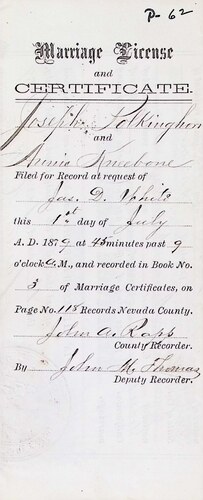 P-62
Marriage License
and
CERTIFICATE.
Joseph Polkinghorn
and
Annie Kneebone
Filed for Record at request of
Jas. D.
this 1st day of July
A. D. 1879 at 45 minutes past 9
o'clock a. M., and recorded in Book No.
3 of Marriage Certificates, on
Page No. 118 Records Nevada County.
John A. Rapp
County Recorder.
By John M. Thomas
Deputy Recorder.